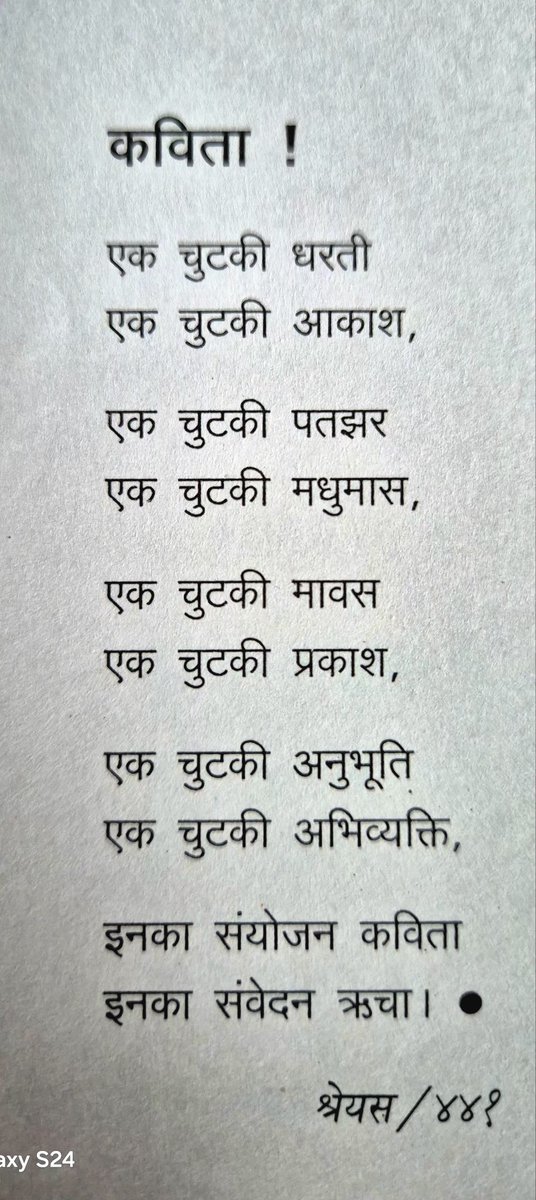 कविता !
एक चुटकी धरती
एक चुटकी आकाश,
एक चुटकी पतझर
एक चुटकी मधुमास,
एक चुटकी मावस
एक चुटकी प्रकाश,
एक चुटकी अनुभूति
एक चुटकी अभिव्यक्ति,
इनका संयोजन कविता
इनका संवेदन ऋचा। ●
श्रेयस/४४१
axy S24